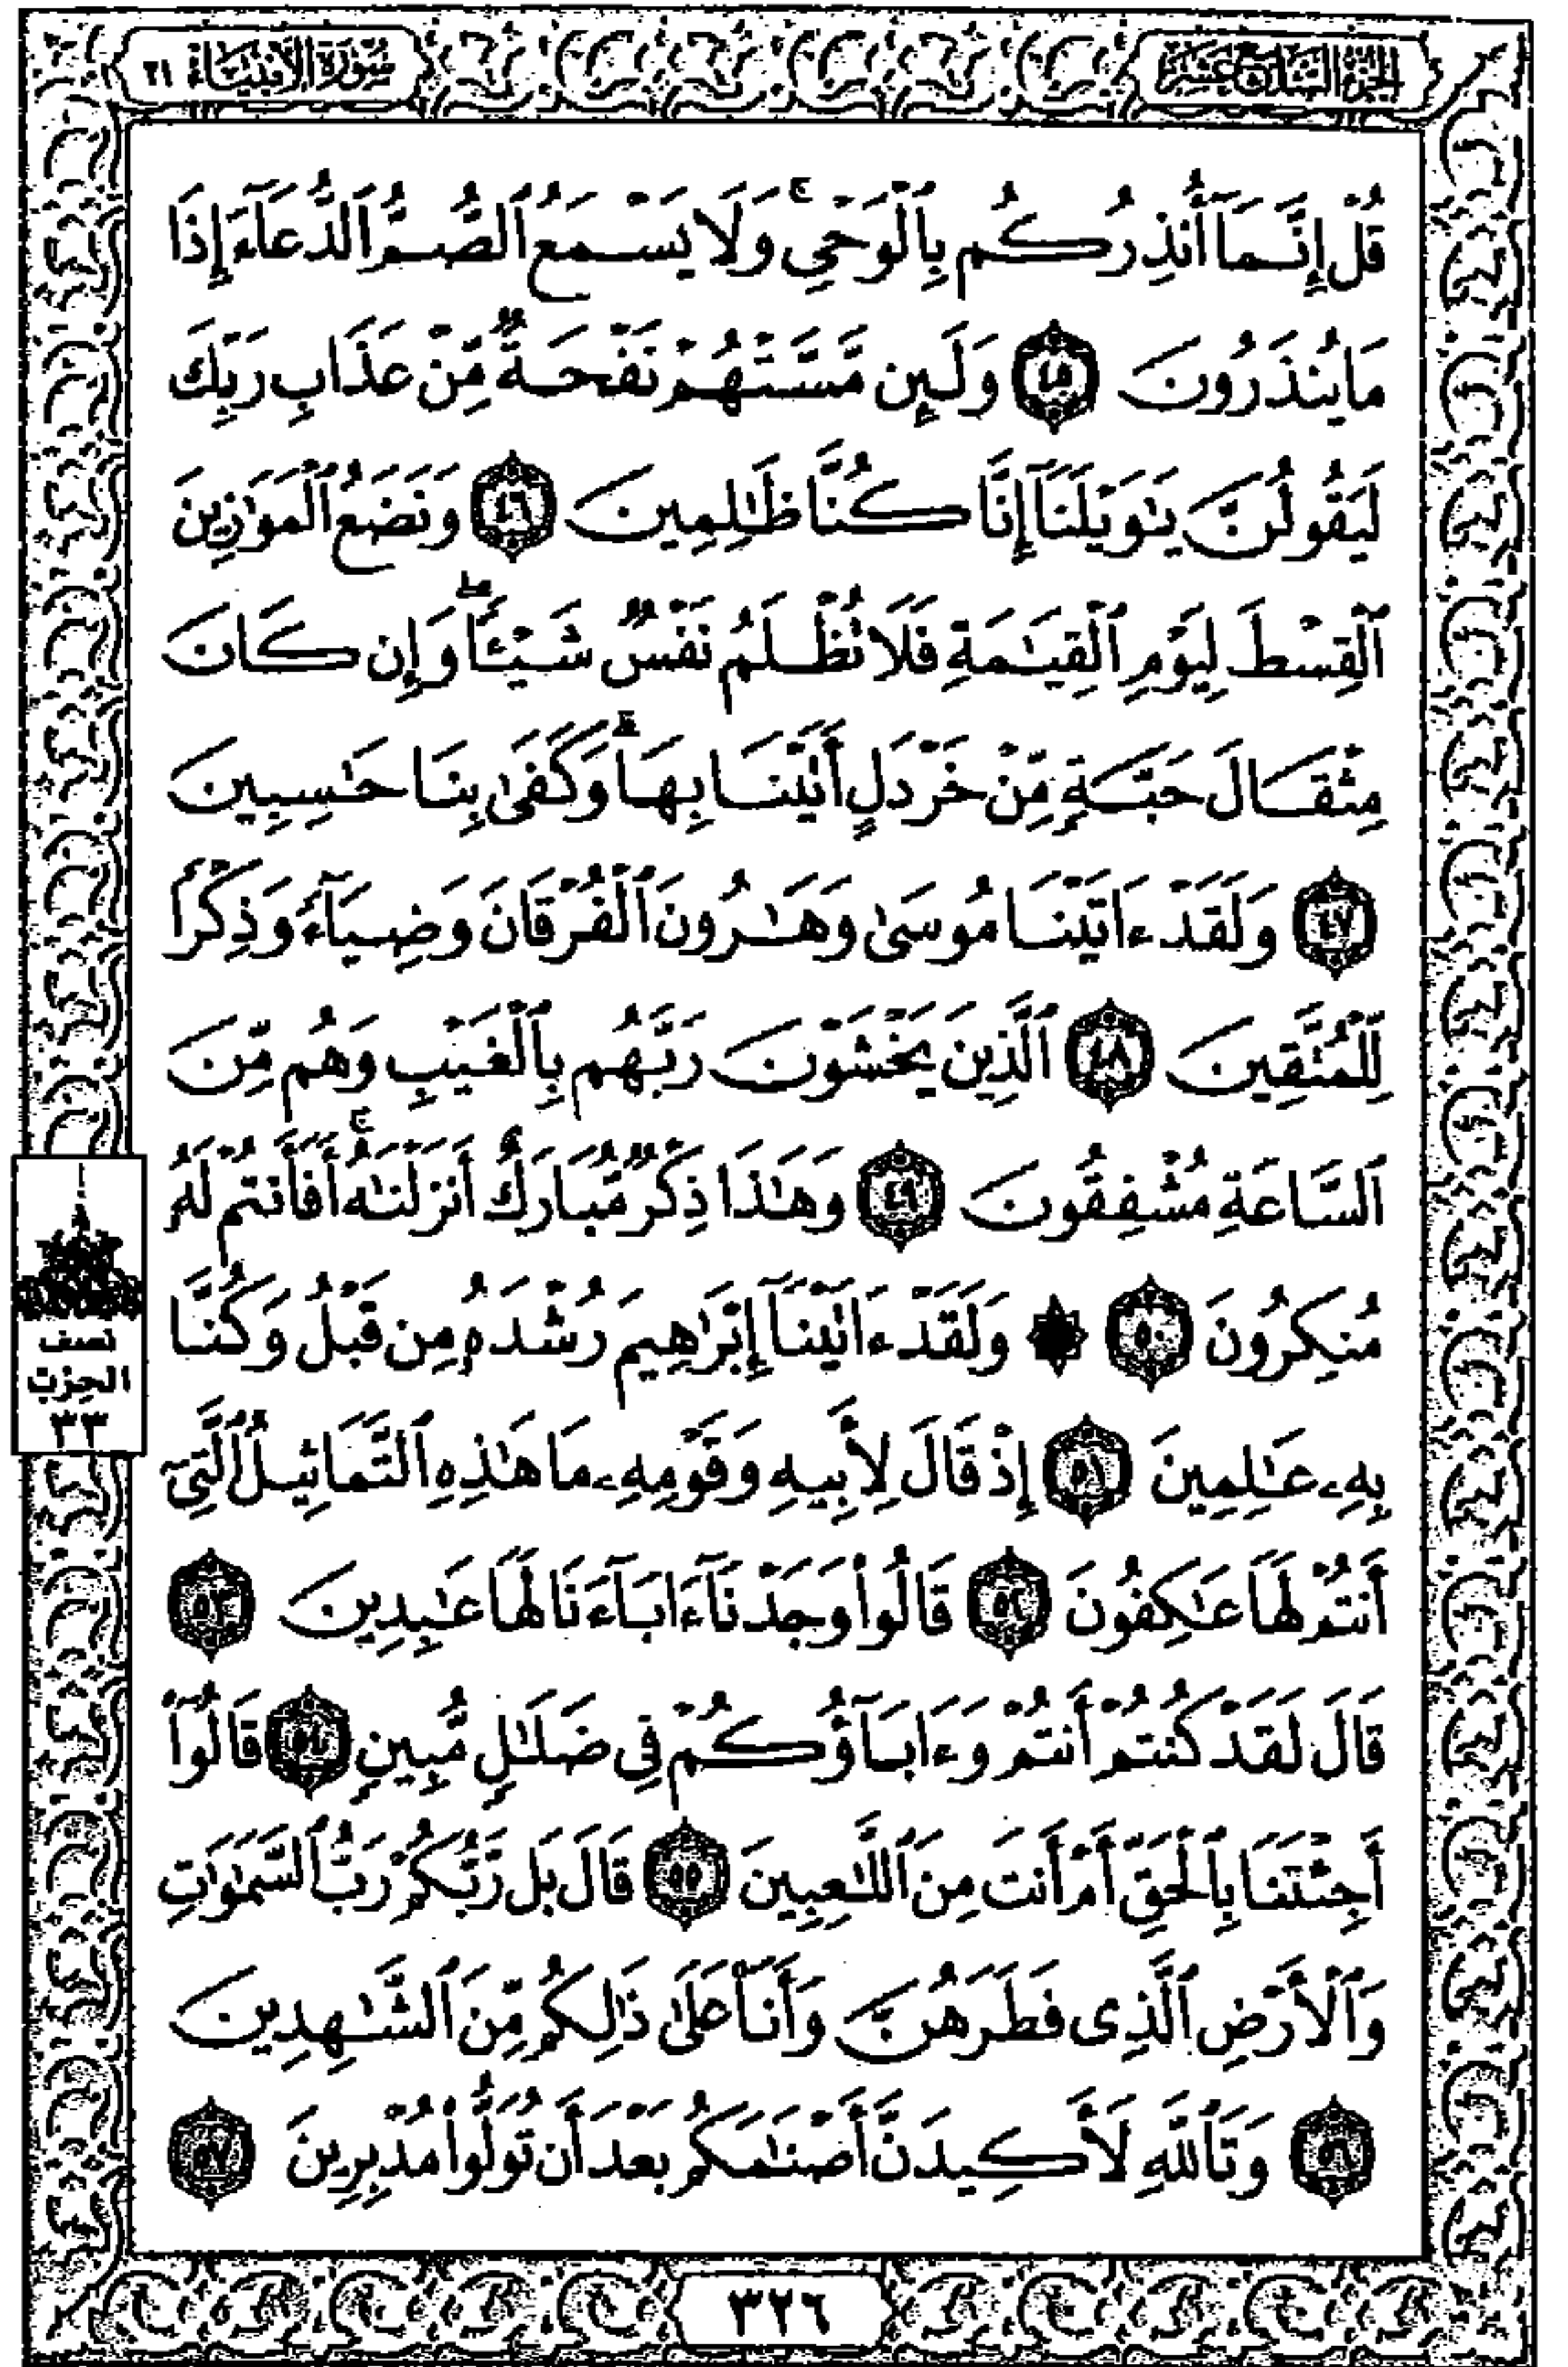 الجزء السابع عشر
سورة الأنبياء ٢١
قُلْ إِنَّمَآ أُنذِرُكُم بِٱلْوَحْىِ ۚ وَلَا يَسْمَعُ ٱلصُّمُّ ٱلدُّعَآءَ إِذَا
مَا يُنذَرُونَ ٤٥ وَلَئِن مَّسَّتْهُمْ نَفْحَةٌ مِّنْ عَذَابِ رَبِّكَ
لَيَقُولُنَّ يَـٰوَيْلَنَآ إِنَّا كُنَّا ظَـٰلِمِينَ ٤٦ وَنَضَعُ ٱلْمَوَٰزِينَ
ٱلْقِسْطَ لِيَوْمِ ٱلْقِيَـٰمَةِ فَلَا تُظْلَمُ نَفْسٌ شَيْـًٔا ۖ وَإِن كَانَ
مِثْقَالَ حَبَّةٍ مِّنْ خَرْدَلٍ أَتَيْنَا بِهَا ۗ وَكَفَىٰ بِنَا حَـٰسِبِينَ
٤٧ وَلَقَدْ ءَاتَيْنَا مُوسَىٰ وَهَـٰرُونَ ٱلْفُرْقَانَ وَضِيَآءً وَذِكْرًا
لِّلْمُتَّقِينَ ٤٨ ٱلَّذِينَ يَخْشَوْنَ رَبَّهُم بِٱلْغَيْبِ وَهُم مِّنَ
ٱلسَّاعَةِ مُشْفِقُونَ ٤٩ وَهَـٰذَا ذِكْرٌ مُّبَارَكٌ أَنزَلْنَـٰهُ ۚ أَفَأَنتُمْ لَهُۥ
مُنكِرُونَ ٥٠ ۞ وَلَقَدْ ءَاتَيْنَآ إِبْرَٰهِيمَ رُشْدَهُۥ مِن قَبْلُ وَكُنَّا
بِهِۦ عَـٰلِمِينَ ٥١ إِذْ قَالَ لِأَبِيهِ وَقَوْمِهِۦ مَا هَـٰذِهِ ٱلتَّمَاثِيلُ ٱلَّتِىٓ
أَنتُمْ لَهَا عَـٰكِفُونَ ٥٢ قَالُوا۟ وَجَدْنَآ ءَابَآءَنَا لَهَا عَـٰبِدِينَ ٥٣
قَالَ لَقَدْ كُنتُمْ أَنتُمْ وَءَابَآؤُكُمْ فِى ضَلَـٰلٍ مُّبِينٍ ٥٤ قَالُوٓا۟
أَجِئْتَنَا بِٱلْحَقِّ أَمْ أَنتَ مِنَ ٱللَّـٰعِبِينَ ٥٥ قَالَ بَل رَّبُّكُمْ رَبُّ ٱلسَّمَـٰوَٰتِ
وَٱلْأَرْضِ ٱلَّذِى فَطَرَهُنَّ وَأَنَا۠ عَلَىٰ ذَٰلِكُم مِّنَ ٱلشَّـٰهِدِينَ
٥٦ وَتَٱللَّهِ لَأَكِيدَنَّ أَصْنَـٰمَكُم بَعْدَ أَن تُوَلُّوا۟ مُدْبِرِينَ ٥٧
نصف
الحزب
٣٣
٣٢٦